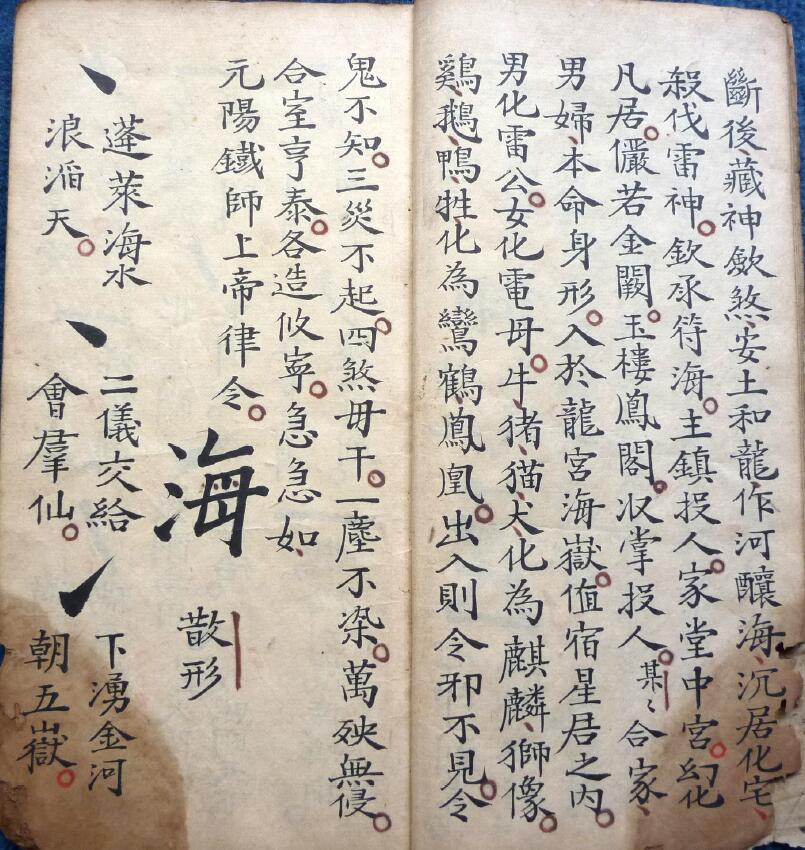 斷後、藏神斂煞、安土和龍、作河釀海、沉居化宅、
殺伐雷神。欽承符海。主鎮投人。家堂中宮。幻化
凡居。儼若金闕。玉樓鳳閣。収掌投人。某〻合家、
男婦、本命身形。入於龍宮海嶽。值宿星居之內。
男化雷公。女化電母。牛、猪、猫、犬、化為麒麟、獅像。
鷄、鵝、鴨、牲、化為鸞鶴、鳳凰。出入則令邪不見。令
鬼不知。三災不起。四煞毋干。一塵不染。萬殃無侵。
合室亨泰。各造攸寧。急急如、
元陽鐵師上帝律令。
海
散形
蓬萊海水
浪滔天。
二儀交給
會羣仙。
下湧金河
朝五嶽。